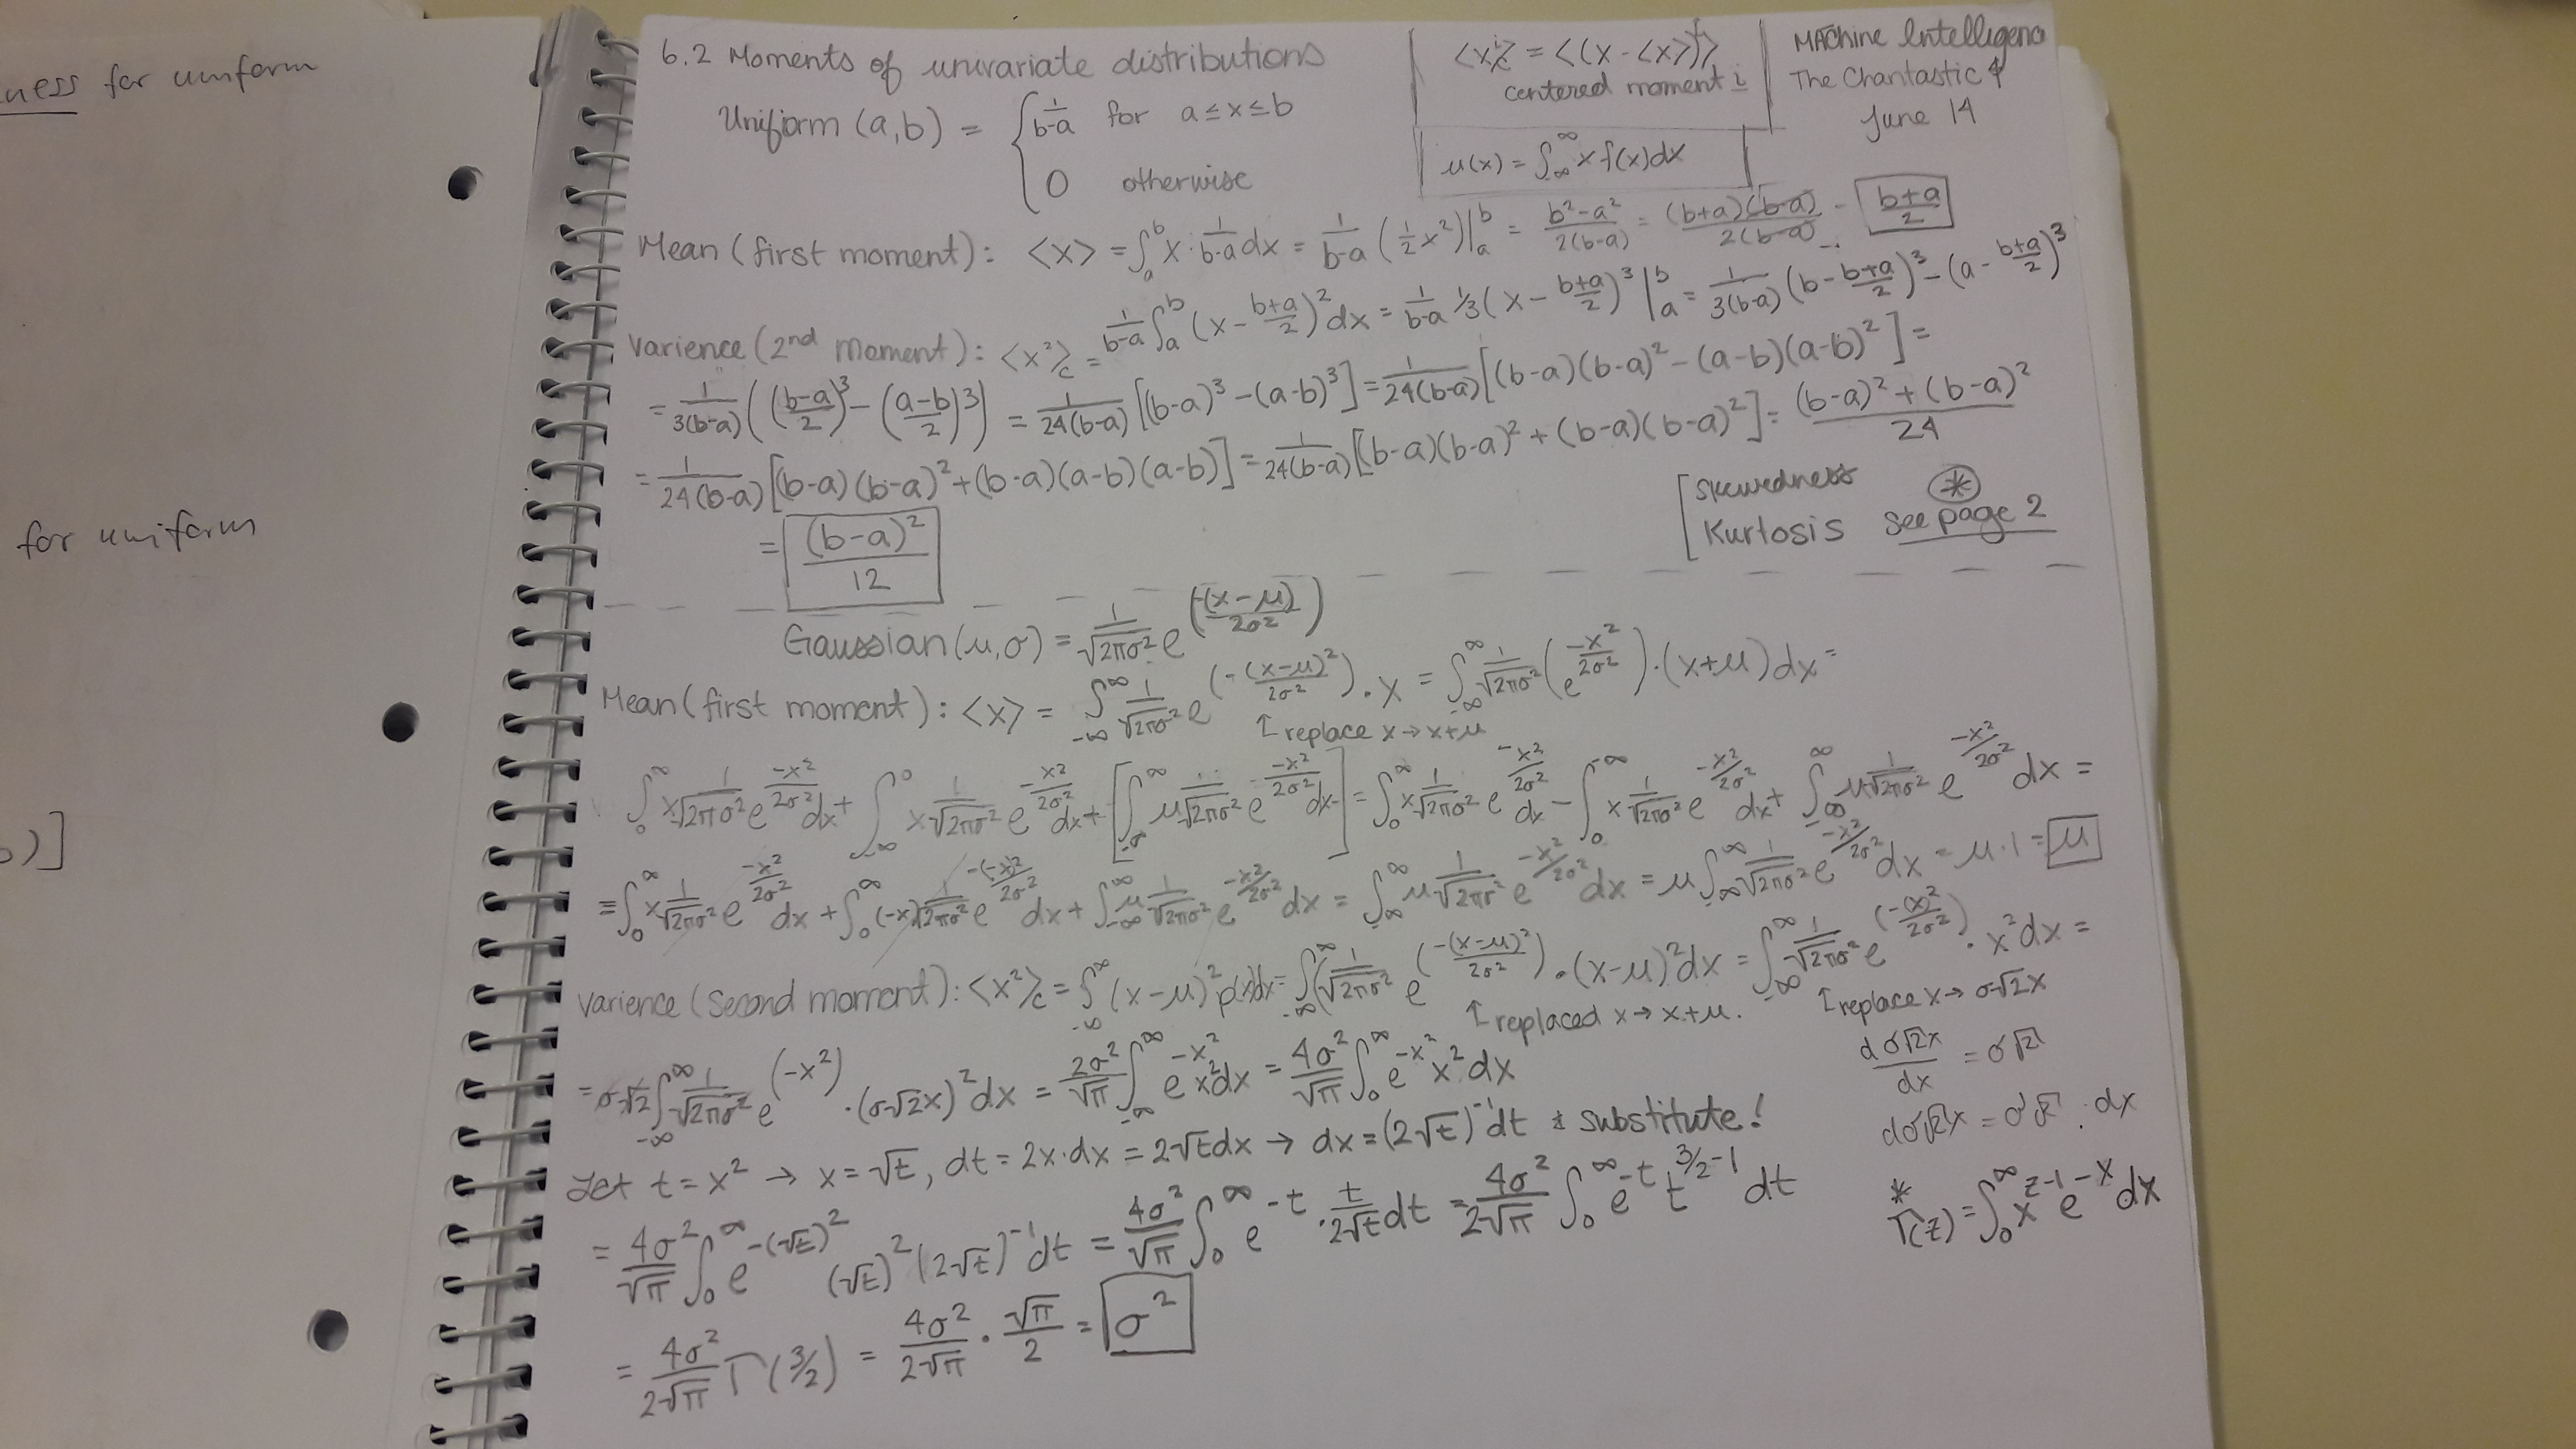 ness for uniform
for uniform
)]
6.2 Moments of univariate distributions
Uniform (a,b) = { 1/(b-a) for a ≤ x ≤ b
0 otherwise
⟨x^i⟩_c = ⟨(x - ⟨x⟩)^i⟩
centered moment i
μ(x) = ∫_{-∞}^{∞} x f(x)dx
MAchine Intelligenc
The Chantastic 4
June 14
Mean (first moment): ⟨x⟩ = ∫_a^b x · 1/(b-a) dx = 1/(b-a) (1/2 x²)|_a^b = (b²-a²)/(2(b-a)) = (b+a)(b-a)/(2(b-a)) = (b+a)/2
Varience (2nd moment): ⟨x²⟩_c = 1/(b-a) ∫_a^b (x - (b+a)/2)² dx = 1/(b-a) 1/3 (x - (b+a)/2)³ |_a^b = 1/(3(b-a)) (b - (b+a)/2)³ - (a - (b+a)/2)³
= 1/(3(b-a)) (((b-a)/2)³ - ((a-b)/2)³) = 1/(24(b-a)) [(b-a)³ - (a-b)³] = 1/(24(b-a)) [(b-a)(b-a)² - (a-b)(a-b)²] =
= 1/(24(b-a)) [(b-a)(b-a)² + (b-a)(a-b)(a-b)] = 1/(24(b-a)) [(b-a)(b-a)² + (b-a)(b-a)²] = ((b-a)² + (b-a)²)/24
= (b-a)²/12
[ Skewedness
Kurtosis see page 2 ⊛
Gaussian (μ,σ) = 1/√(2πσ²) e^(-(x-μ)/(2σ²))
Mean (first moment): ⟨x⟩ = ∫_{-∞}^{∞} 1/√(2πσ²) e^(-(x-μ)²/(2σ²)) · x = ∫_{-∞}^{∞} 1/√(2πσ²) (e^(-x²/(2σ²))) · (x+μ) dx =
↑ replace x → x+μ
∫_0^∞ x 1/√(2πσ²) e^(-x²/2σ²) dx + ∫_{-∞}^0 x 1/√(2πσ²) e^(-x²/2σ²) dx + [∫_{-∞}^∞ μ 1/√(2πσ²) e^(-x²/2σ²) dx] = ∫_0^∞ x 1/√(2πσ²) e^(-x²/2σ²) dx - ∫_0^{-∞} x 1/√(2πσ²) e^(-x²/2σ²) dx + ∫_{-∞}^∞ μ 1/√(2πσ²) e^(-x²/2σ²) dx =
= ∫_0^∞ x 1/√(2πσ²) e^(-x²/2σ²) dx + ∫_0^∞ (-x) 1/√(2πσ²) e^(-(-x)²/2σ²) dx + ∫_{-∞}^∞ μ 1/√(2πσ²) e^(-x²/2σ²) dx = ∫_{-∞}^∞ μ 1/√(2πσ²) e^(-x²/2σ²) dx = μ ∫_{-∞}^∞ 1/√(2πσ²) e^(-x²/2σ²) dx = μ · 1 = μ
Varience (Second moment): ⟨x²⟩_c = ∫_{-∞}^∞ (x-μ)² p(x)dx = ∫_{-∞}^∞ (1/√(2πσ²) e^(-(x-μ)²/(2σ²)) · (x-μ)² dx = ∫_{-∞}^∞ 1/√(2πσ²) e^(-(x)²/(2σ²)) · x² dx =
↑ replaced x → x+μ.
↑ replace x → σ√2x
= σ√2 ∫_{-∞}^∞ 1/√(2πσ²) e^(-x²) · (σ√2x)² dx = 2σ²/√π ∫_{-∞}^∞ e^(-x²) x² dx = 4σ²/√π ∫_0^∞ e^(-x²) x² dx
dσ√2x/dx = σ√2
dσ√2x = σ√2 · dx
Let t = x² → x = √t, dt = 2x·dx = 2√t dx → dx = (2√t)^-1 dt & substitute!
= 4σ²/√π ∫_0^∞ e^(-(√t)²) (√t)² (2√t)^-1 dt = 4σ²/√π ∫_0^∞ e^(-t) · t/(2√t) dt = 4σ²/(2√π) ∫_0^∞ e^(-t) t^(3/2-1) dt
* Γ(z) = ∫_0^∞ x^(z-1) e^(-x) dx
= 4σ²/(2√π) Γ(3/2) = 4σ²/(2√π) · √π/2 = σ²